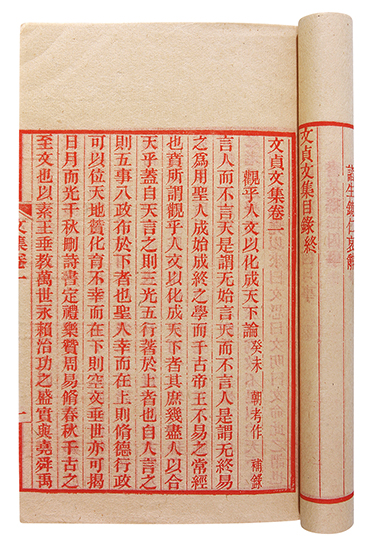 諸生錢仁
文貞文集目錄終
文貞文集卷一
觀乎人文以化成天下論 癸未 朝考作 補錄
言人而不言天是謂无始言天而不言人是謂无終易
之爲用聖人成始成終之學而千古帝王不易之常經
也賁所謂觀乎人文以化成天下者其庶幾盡人以合
天乎蓋自天言之則三光五行著於上者也自人言之
則五事八政布於下者也聖人幸而在上則脩德行政
可以位天地贊化育不幸而在下則空文垂世亦可揭
日月而光千秋刪詩書定禮樂贊周易脩春秋千古之
至文也以素王垂教萬世永賴治功之盛實與堯舜禹
文集卷一
一